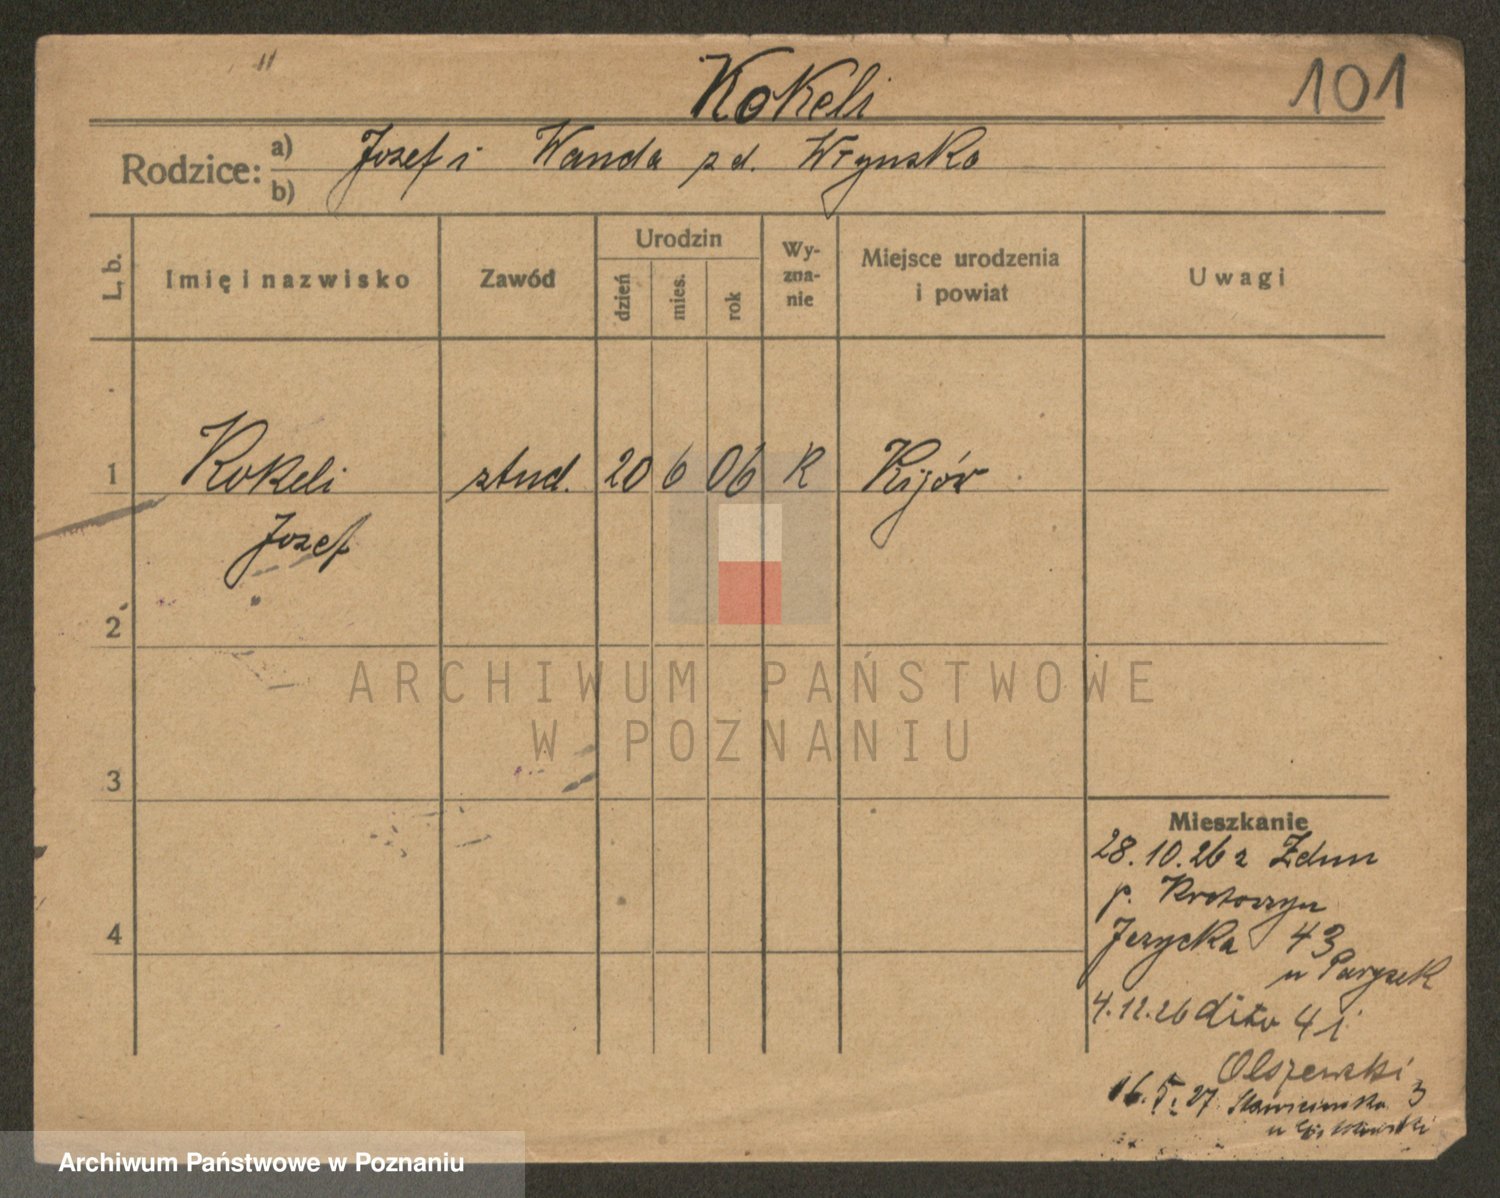 Kokeli
101
Rodzice: a) Jozef i Wanda z d.
b)
L. b.
Imię i nazwisko
Zawód
Urodzin
dzień
mies.
rok
Wy-
zna-
nie
Miejsce urodzenia
i powiat
Uwagi
1 Kokeli stud. 20 6 06 R Kijów
Jozef
2
3
4
Mieszkanie
28.10.26 z Zdun
p. Krotoszyn
Jezycka 43
u Paryzek
4.12.26 dito 41
Olszewski
16.5.27 3
u
ARCHIWUM PAŃSTWOWE
W POZNANIU
Archiwum Państwowe w Poznaniu